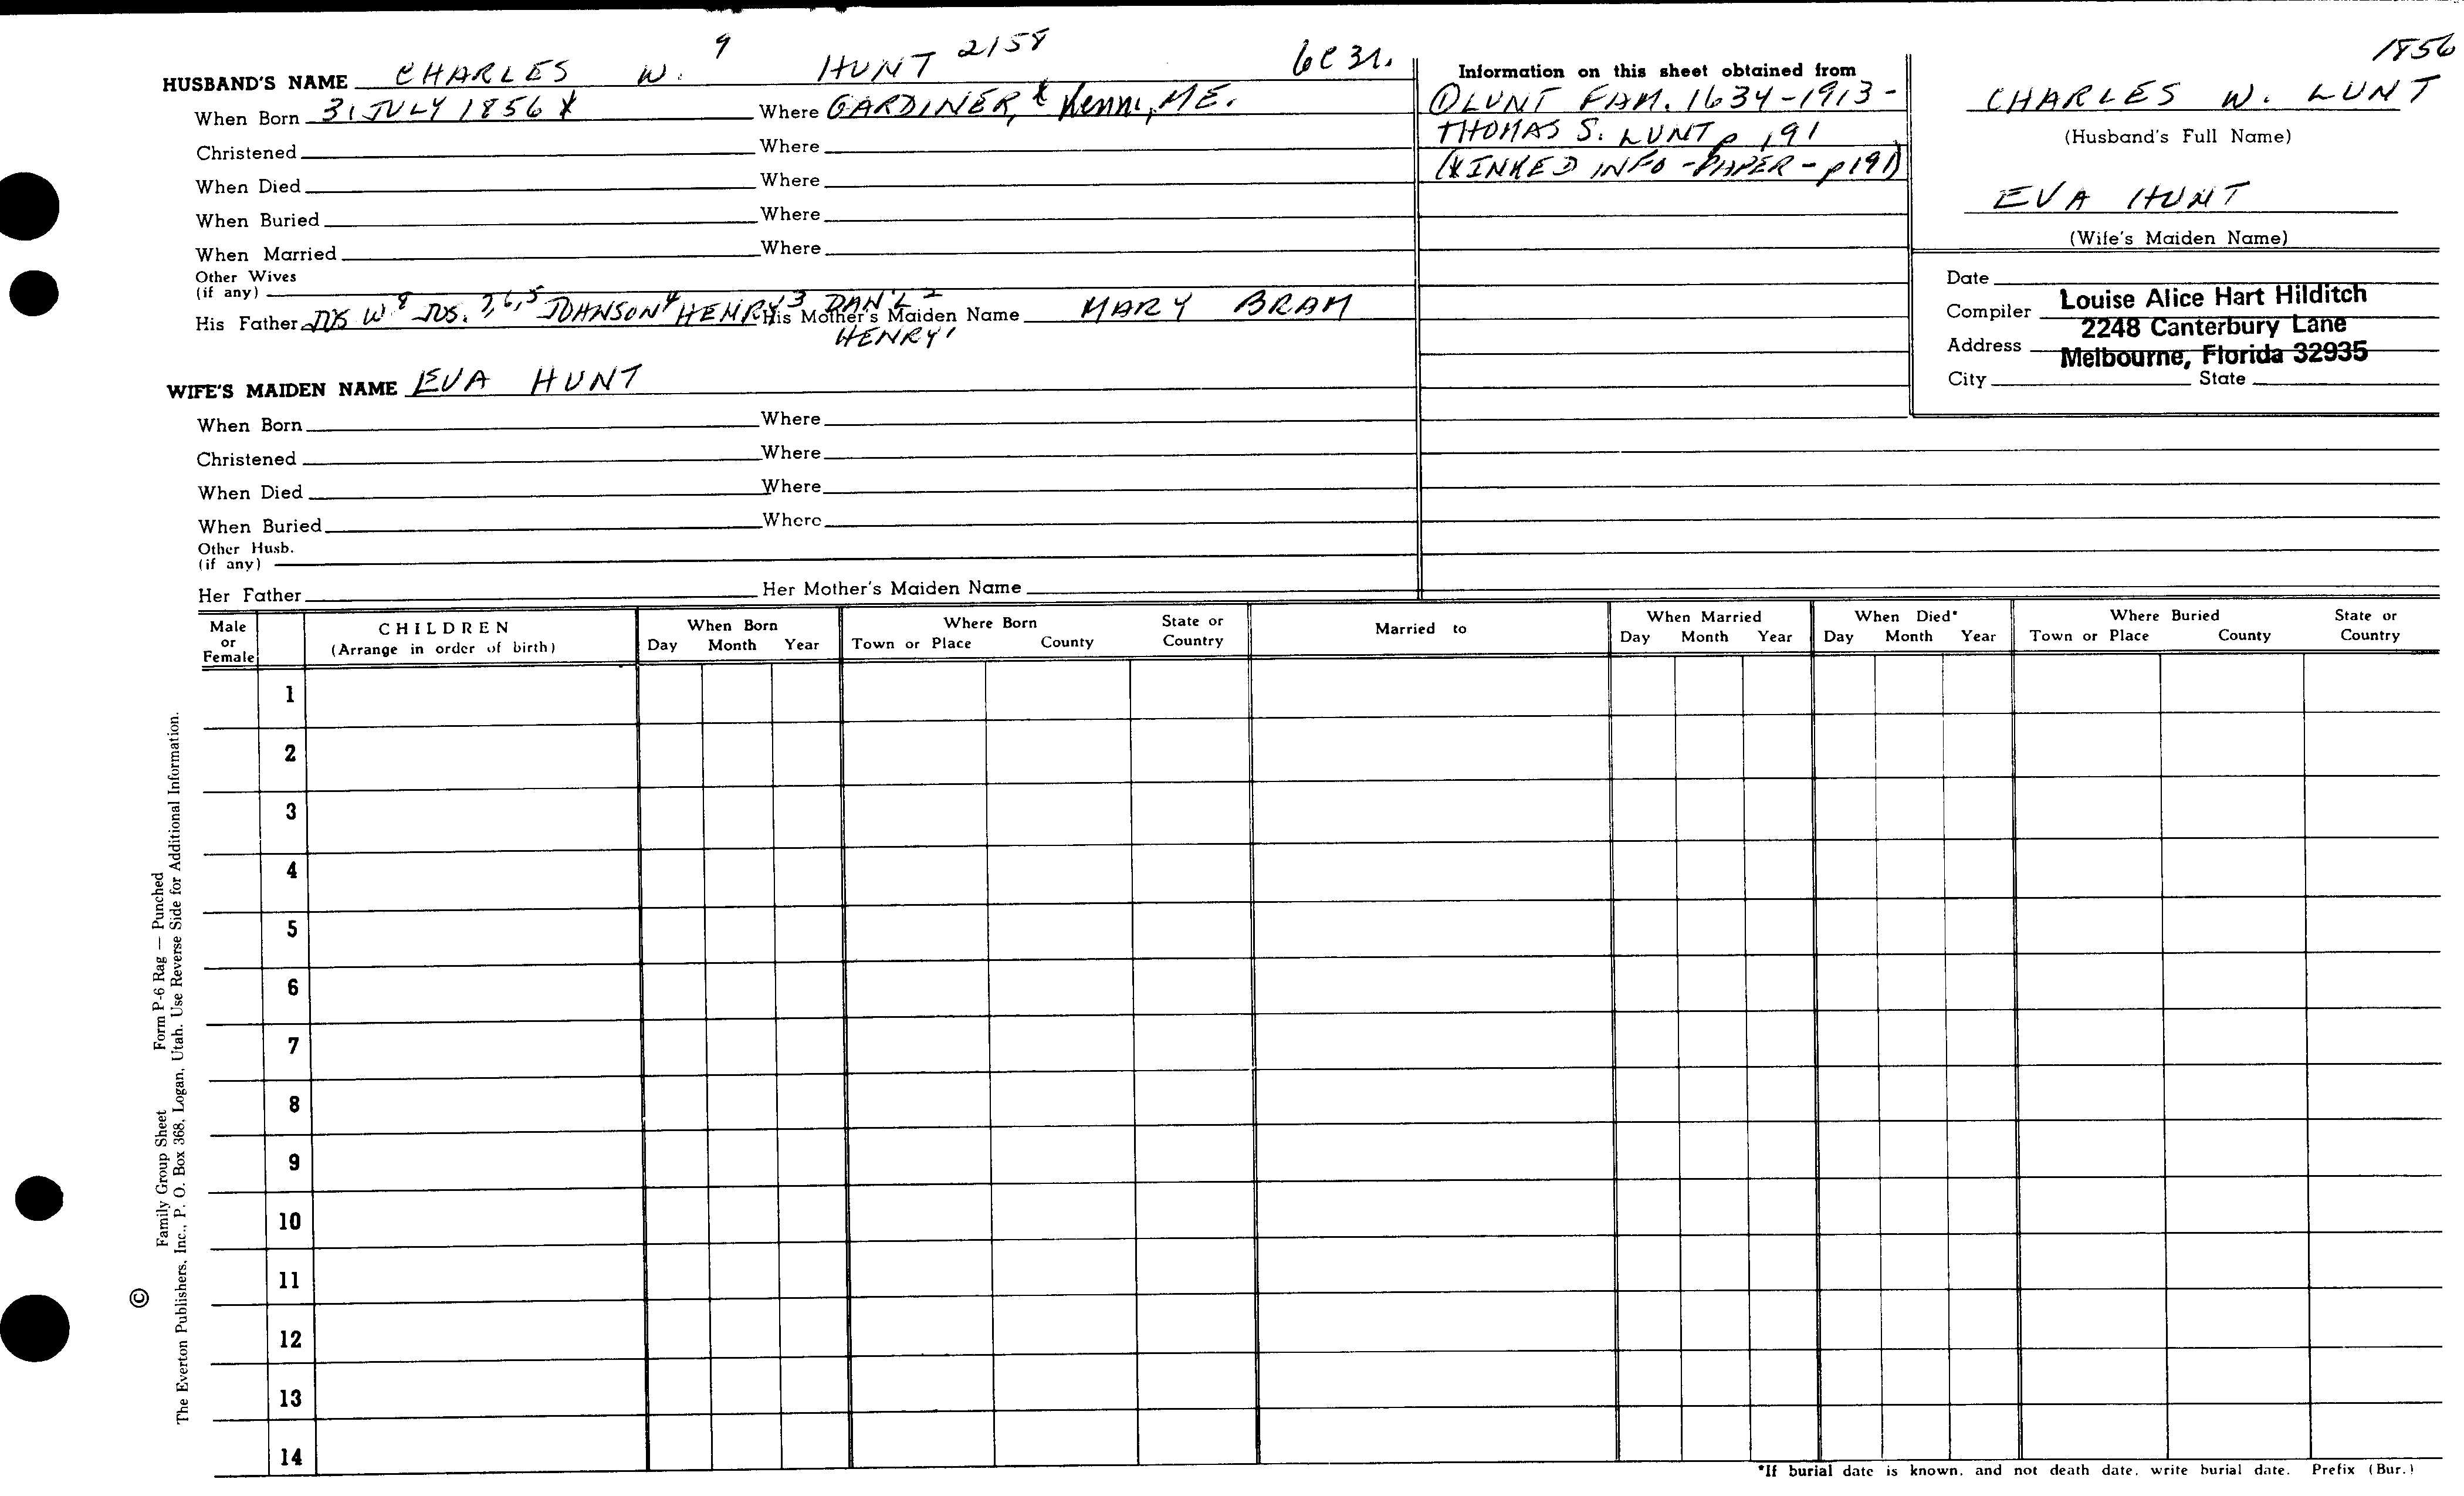 1856
HUSBAND'S NAME CHARLES W. 9 HUNT 2158
When Born 31 JULY 1856 * Where GARDINER, * Kenn., ME.
Christened Where
When Died Where
When Buried Where
When Married Where
Other Wives
(if any)
His Father JOS W 8 JOS. 7,6,5 JOHNSON 4 HENRY 3 DAN'L 2 His Mother's Maiden Name MARY BRAM
HENRY 1
WIFE'S MAIDEN NAME EVA HUNT
When Born Where
Christened Where
When Died Where
When Buried Where
Other Husb.
(if any)
Her Father Her Mother's Maiden Name
Information on this sheet obtained from
① LUNT FAM. 1634-1913-
THOMAS S. LUNT p 191
(* INKED INFO - PAPER - p 191)
CHARLES W. LUNT
(Husband's Full Name)
EVA HUNT
(Wife's Maiden Name)
Date
Compiler Louise Alice Hart Hilditch
2248 Canterbury Lane
Address Melbourne, Florida 32935
City State
Male or Female CHILDREN (Arrange in order of birth) When Born Day Month Year Where Born Town or Place County State or Country Married to When Married Day Month Year When Died* Day Month Year Where Buried Town or Place County State or Country
1
2
3
4
5
6
7
8
9
10
11
12
13
14
*If burial date is known, and not death date, write burial date. Prefix (Bur.)
© Family Group Sheet Form P-6 Rag — Punched
The Everton Publishers, Inc., P. O. Box 368, Logan, Utah. Use Reverse Side for Additional Information.